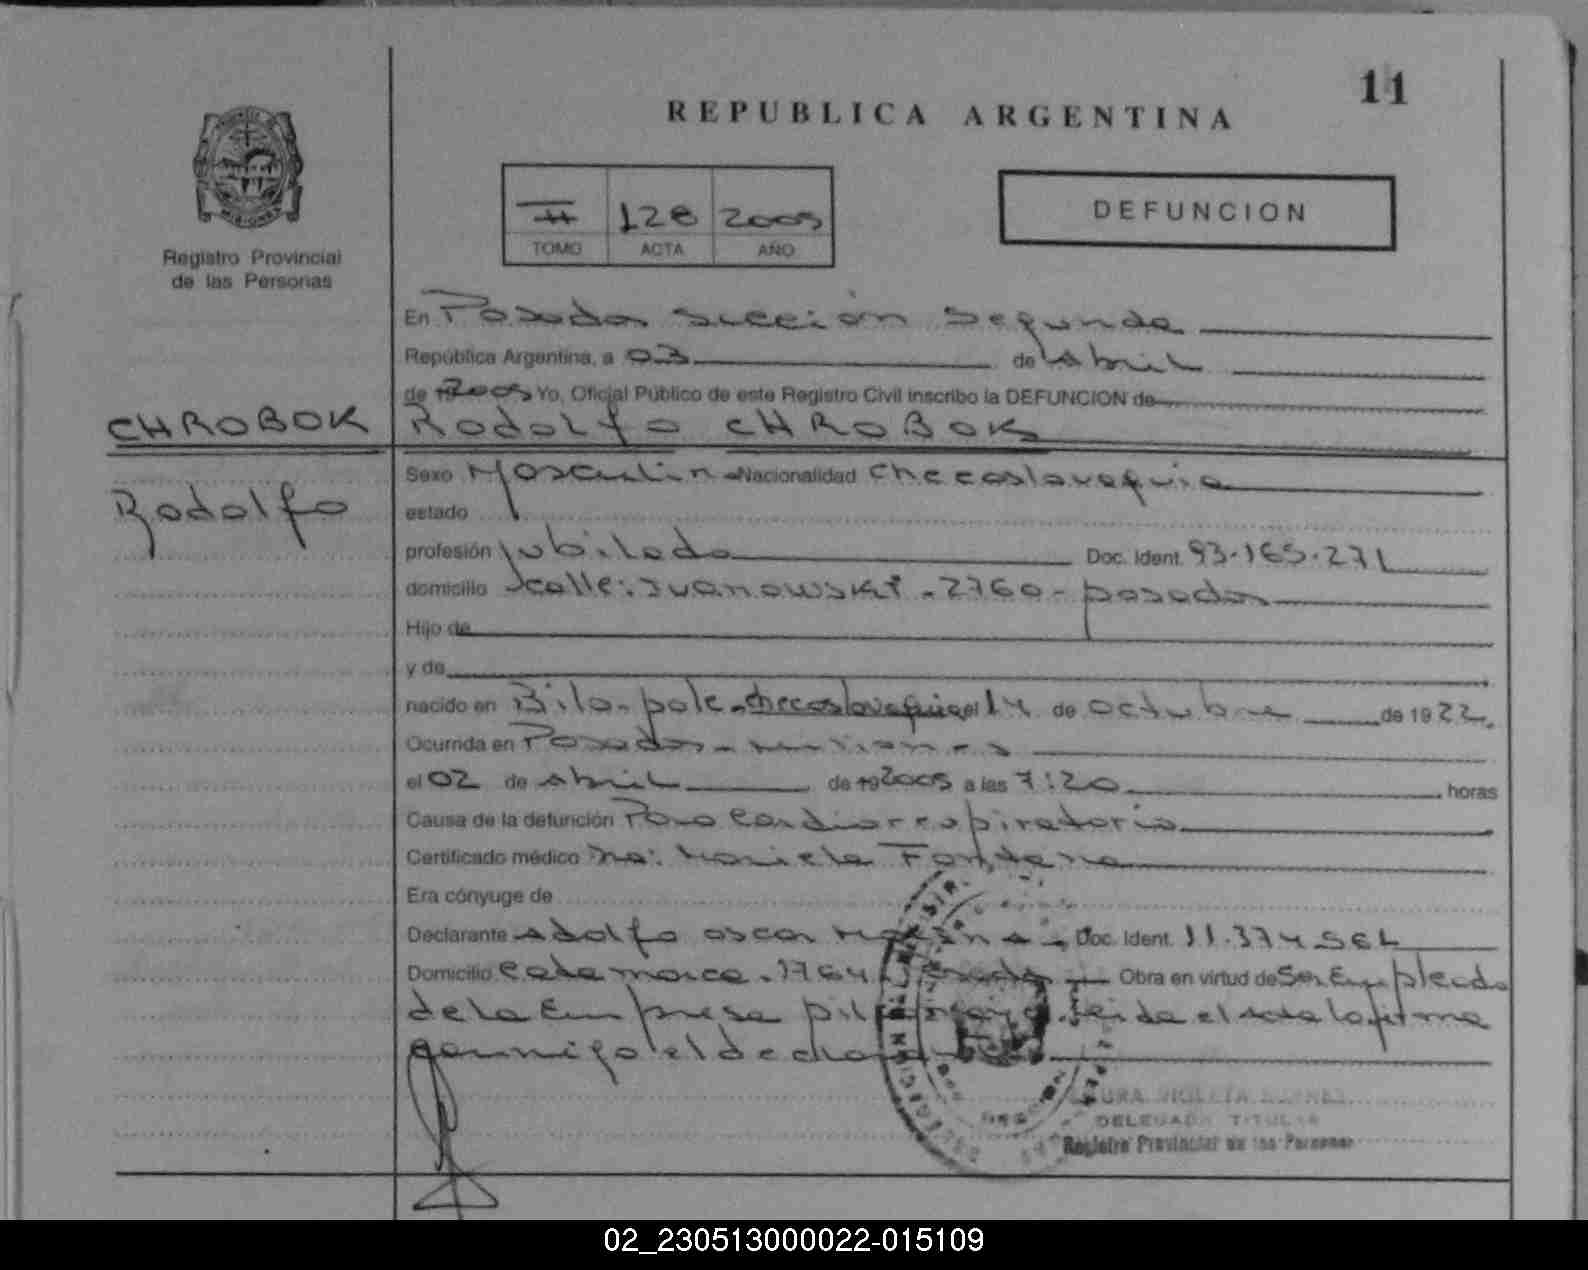 11
REPUBLICA ARGENTINA
II 128 2005
TOMO ACTA AÑO
DEFUNCION
Registro Provincial
de las Personas
En Posadas Sección Segunda
República Argentina, a 03 de Abril
de 2005 Yo, Oficial Público de este Registro Civil inscribo la DEFUNCION de
CHROBOK
Rodolfo CHROBOK
Rodolfo
Sexo Masculino Nacionalidad Checoslovaquia
estado
profesión Jubilado Doc. Ident. 93.165.271
domicilio calle: Ivanowski - 2760 - posadas
Hijo de
y de
nacido en Bila-pole-checoslovaquia el 14 de octubre de 1922.
Ocurrida en Posadas - misiones
el 02 de Abril de 2005 a las 7:20 horas
Causa de la defunción Paro Cardiorrespiratorio
Certificado médico Dra: Mariela Fontana
Era cónyuge de
Declarante Adolfo oscar Doc. Ident. 11.374.561
Domicilio Catamarca - 1764 Obra en virtud de Ser Empleado
de la Empresa leida el acta la firma
conmigo el
DELEGADA TITULAR
Registro Provincial de las Personas
02_230513000022-015109